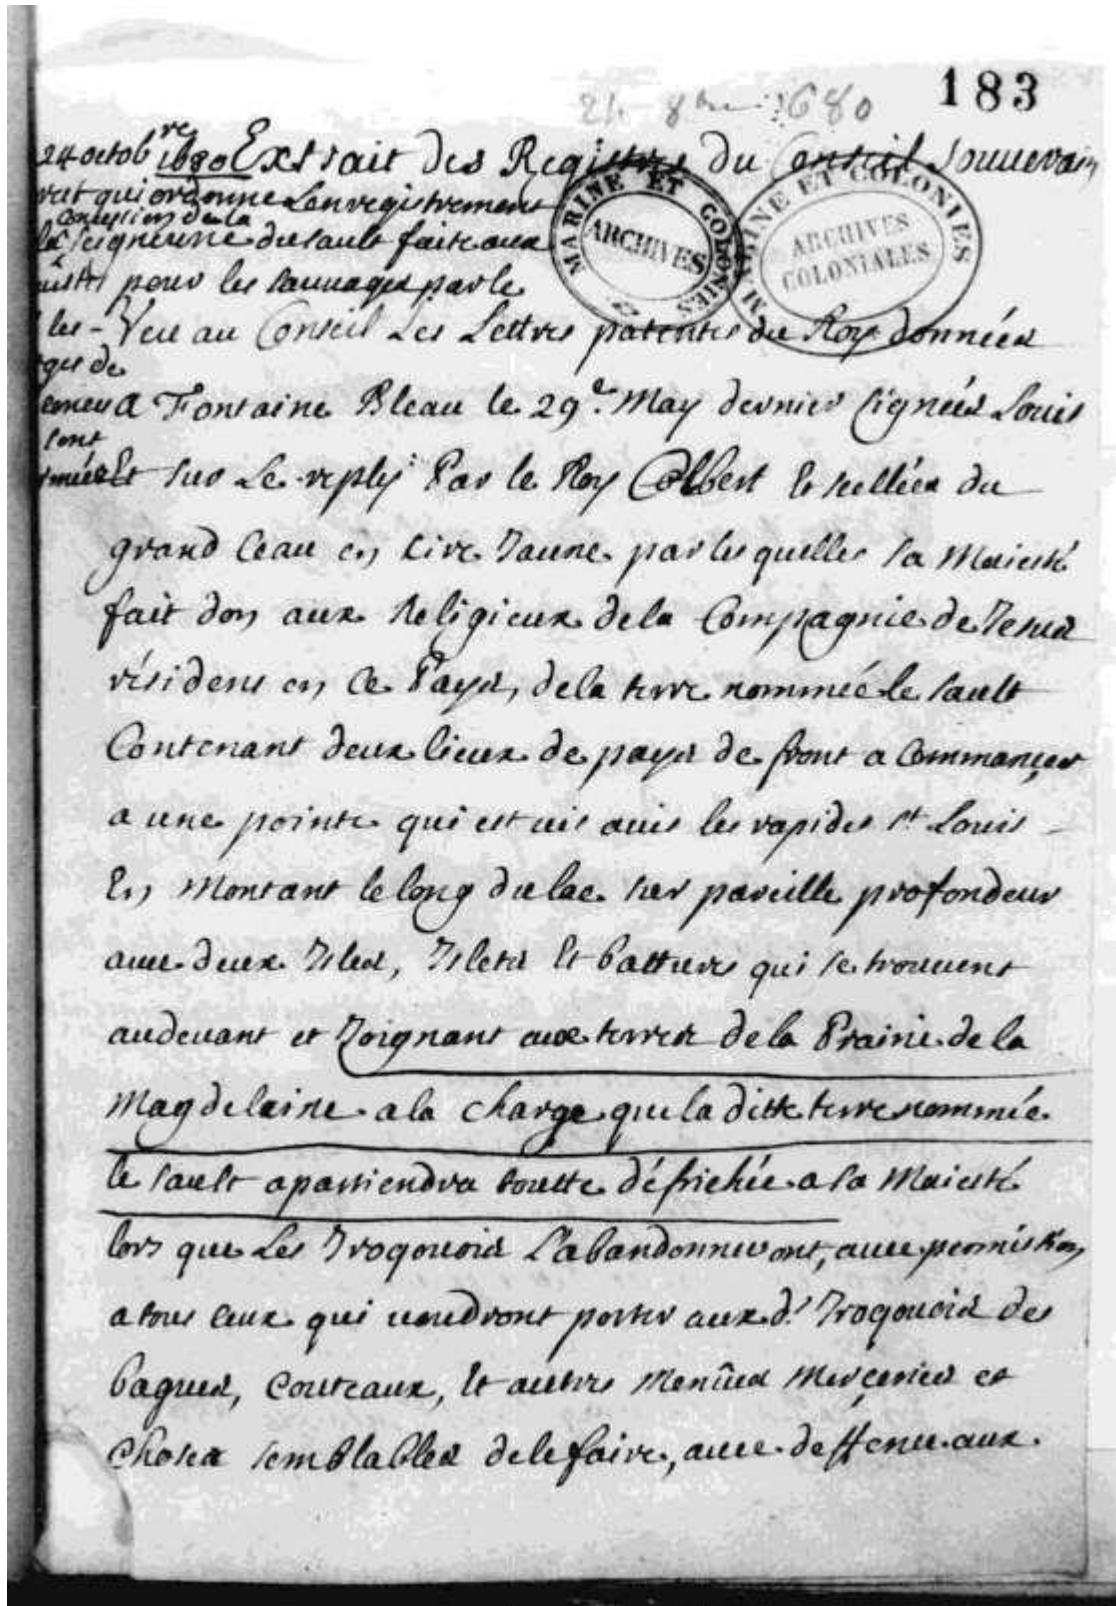 183
24 8bre 1680
24 octobre 1680 Extrait des Registres du Conseil Souuerain
qui ordonne Lenregistrement
Concession de la
Seigneurie du sault faite aux
pour les sauuages par le
les - Veu au Conseil Les Lettres patentes du Roy données
a Fontaine Bleau le 29e. May dernier signées Louis
sont
Et sur Le reply Par le Roy Colbert Et sellées du
grand Ceau en Cire Jaune par lesquelles sa Maiesté
fait don aux Religieux de la Compagnie de Jesus
résidens en Ce Pays, de la terre nommée le sault
Contenant deux lieux de pays de front a Commançer
a une pointe qui est uis auis les rapides st. Louis
En Montant le long du lac sur pareille profondeur
auec deux Isles, Islets Et battures qui se trouuent
audeuant et Joignant aux terres de la Prairie de la
Magdelaine a la charge que la ditte terre nommée
le sault apartiendra toutte défrichée a sa Maiesté
lors que Les Iroquois L'abandonneront, auec permission
a tous ceux qui uoudront porter aux ds. Iroquois des
bagues, Couteaux, Et autres Menûes Merçeries et
Choses semblables de le faire, auec deffence aux
MARINE ET COLONIES
ARCHIVES
MARINE ET COLONIES
ARCHIVES
COLONIALES